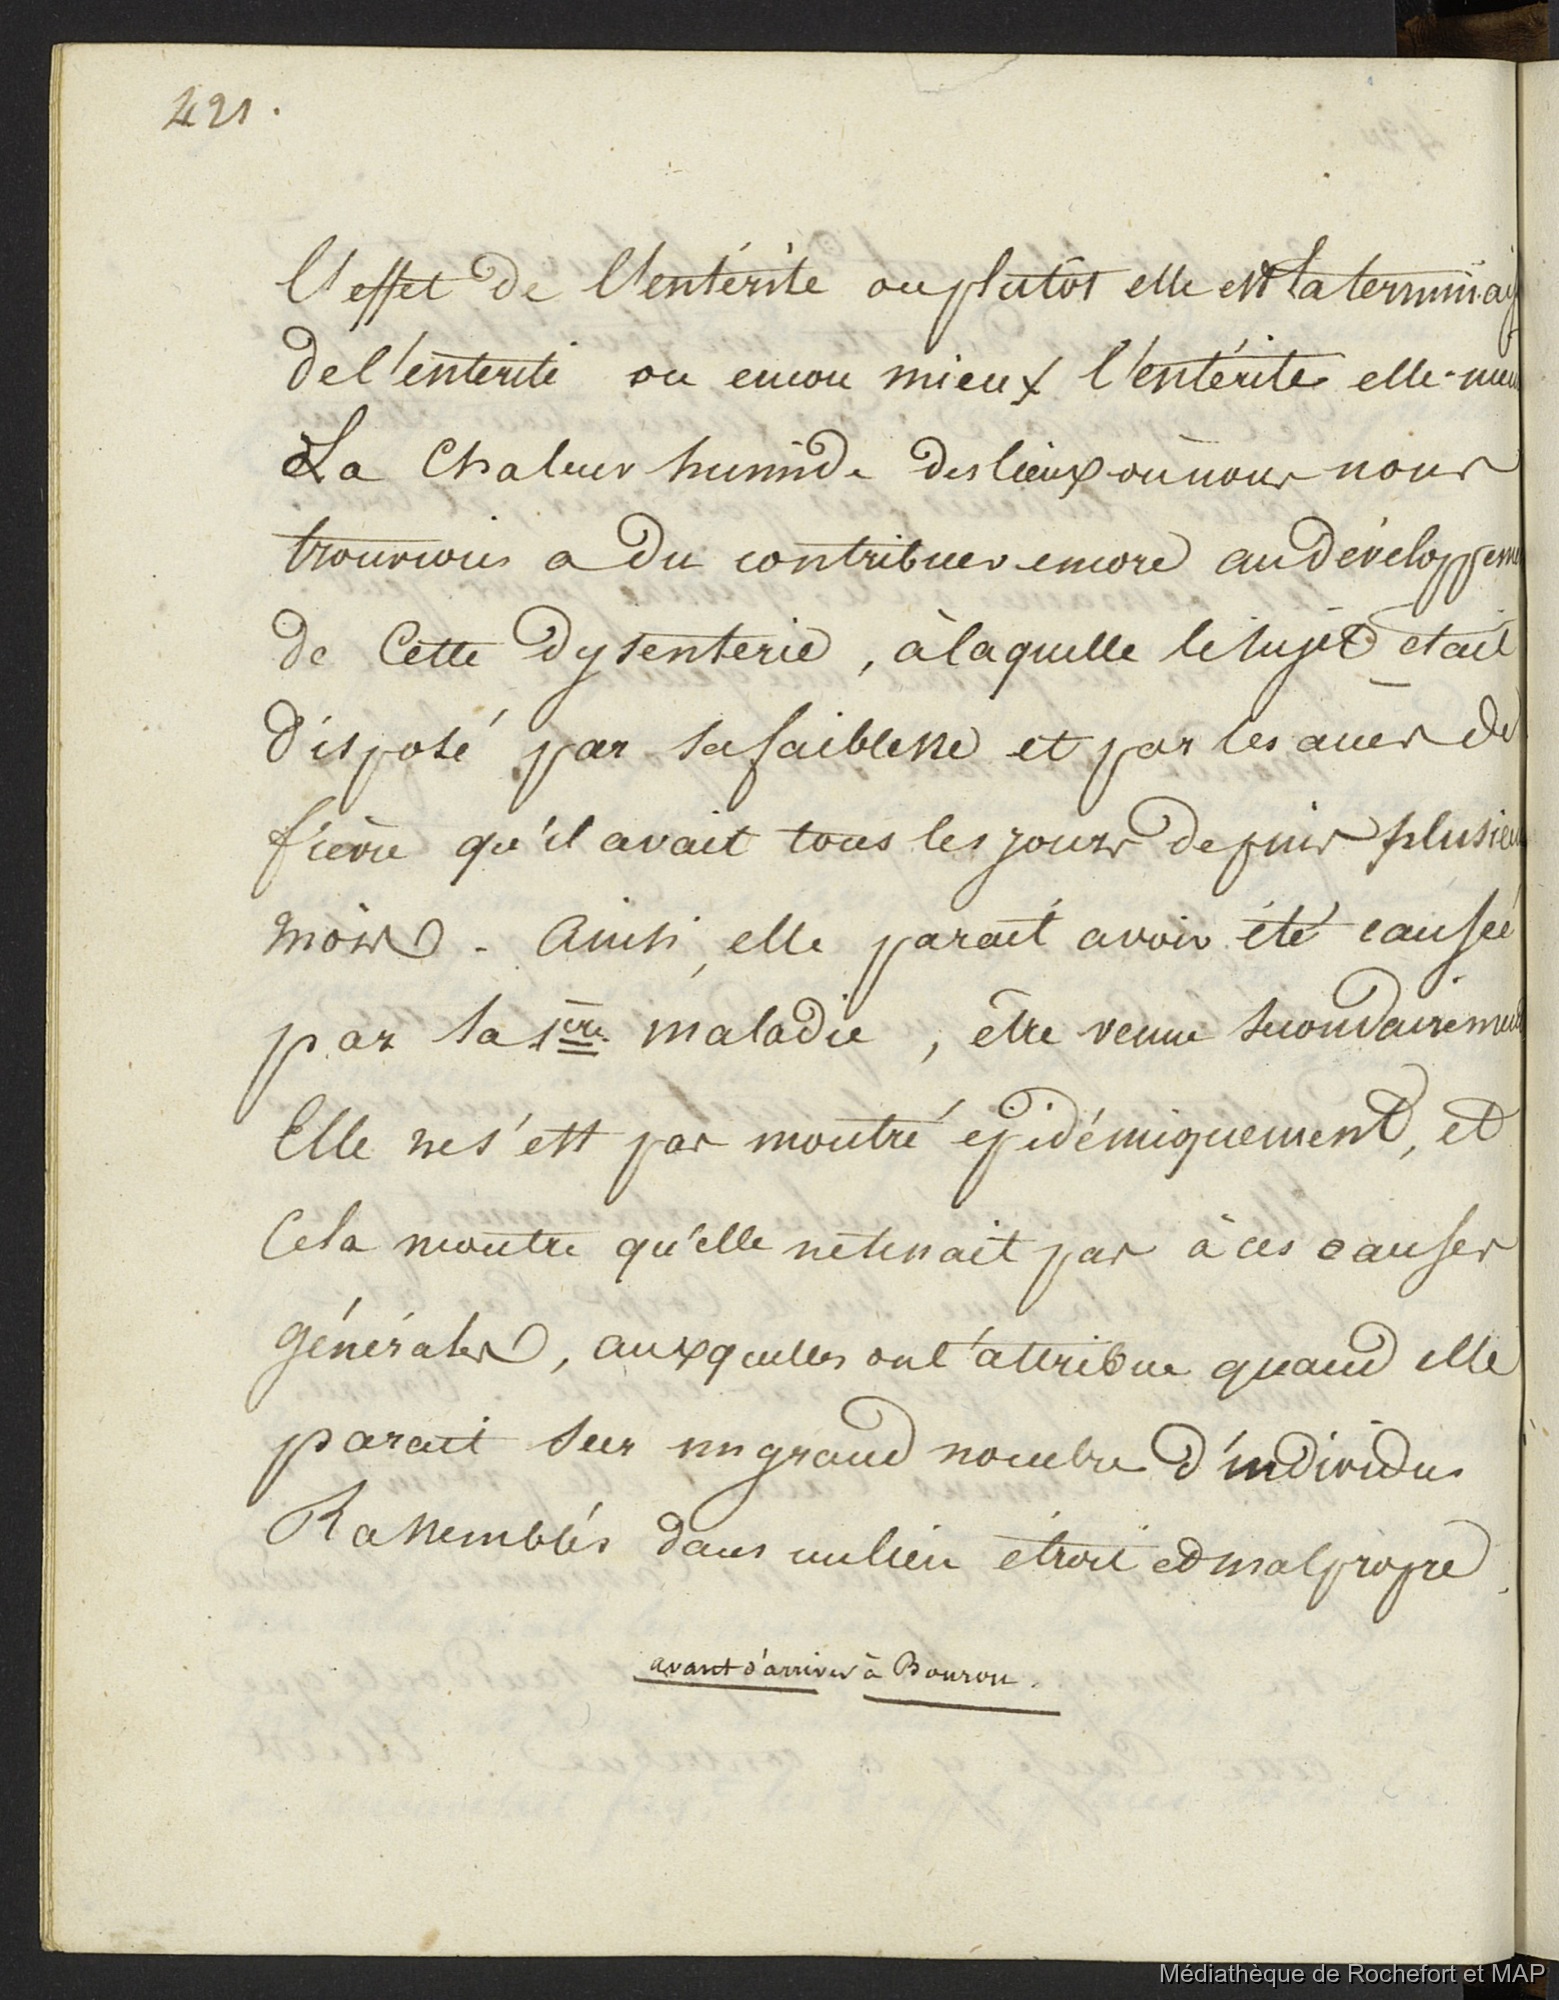 421.
l'effet de l'entérite ou plutôt elle est la terminai
de l'enterite ou encore mieux l'entérite elle-mem
La Chaleur humide des lieux où nous nous
trouvions a du contribuer encore au développeme
de Cette Dysenterie, à laquelle le sujet etait
disposé par sa faiblesse et par les accès de
fièvre qu'il avait tous les jours depuis plusieu
mois - Ainsi, elle parait avoir été causée
par sa 1ère maladie, être venue secondairement
Elle ne s'est pas montré épidémiquement, et
Cela montre qu'elle ne tenait pas à ces causes
générales, auxquelles on l'attribue quand elle
parait sur un grand nombre d'individus
Rassemblés dans un lieu étroit et malpropre.
avant d'arriver à Bouron.
Médiathèque de Rochefort et MAP